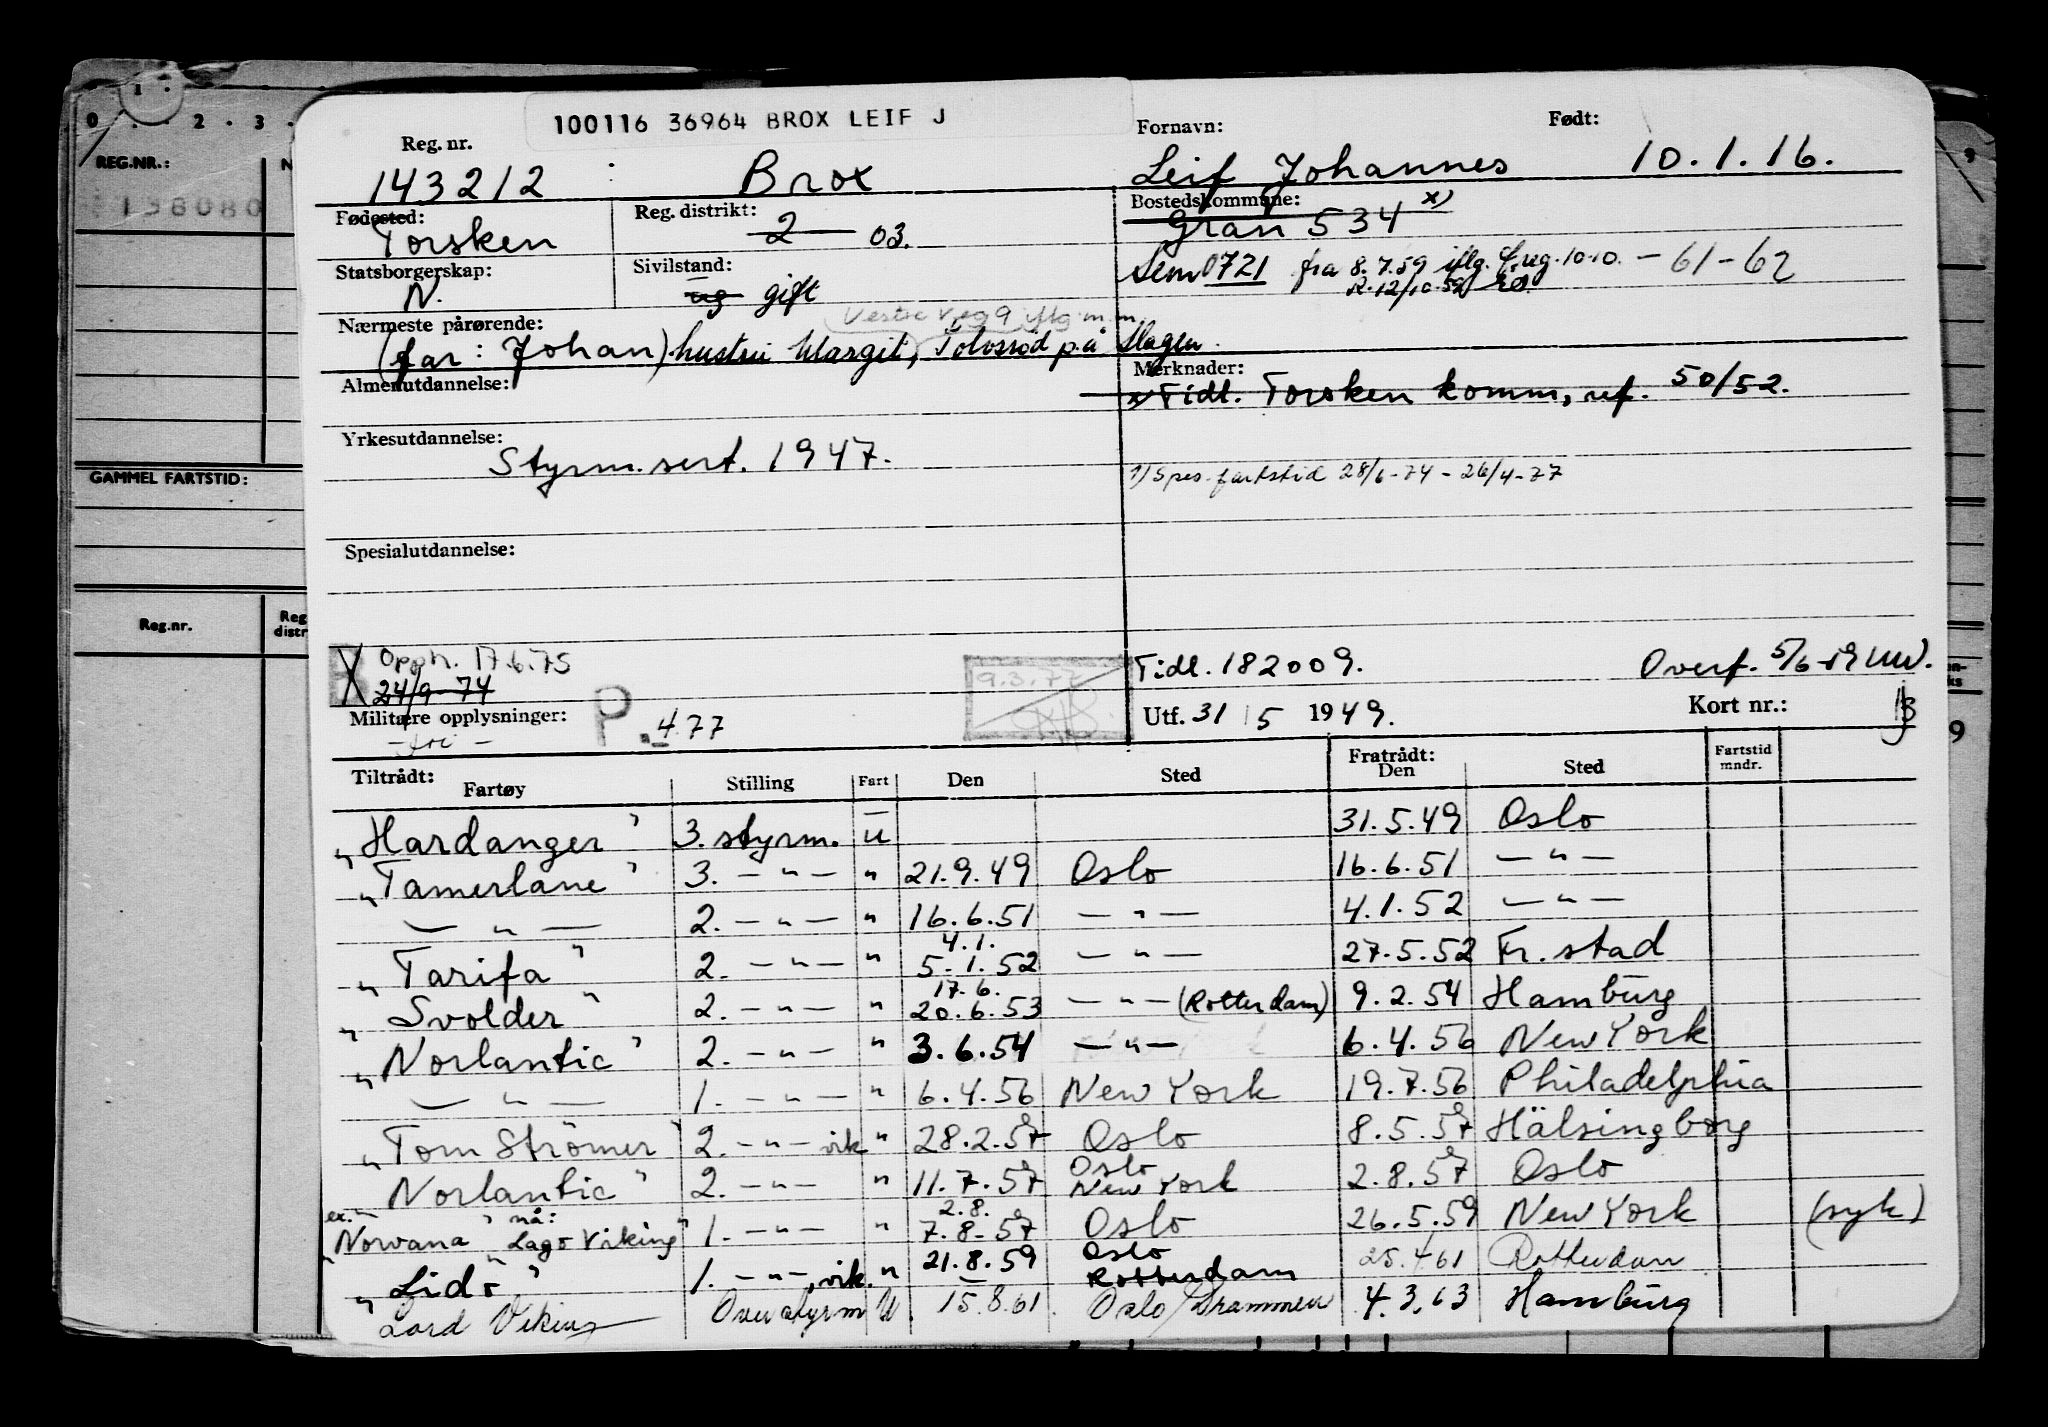 0 . 1 . 2 . 3 .
REG.NR.: N
138080
GAMMEL FARTSTID:
Reg.nr. Reg distr
9
9
100116 36964 BROX LEIF J
Reg. nr. Fornavn: Født:
143212 : Brox Leif Johannes 10.1.16.
Fødested: Reg. distrikt: Bostedskommune: x)
Torsken 2 03. Gran 534
Statsborgerskap: Sivilstand: Sem 0721 fra 8.7.59 iflg. f.reg. 10.10. - 61-62
N. ug gift R.12/10.59
Nærmeste pårørende: Vestre Veg 9 iflg m.m.
(far: Johan) hustru Margit, Tolvsrød p.å Slagen.
Almenutdannelse: Merknader:
x) Tidl. Torsken komm, ref. 50/52.
Yrkesutdannelse:
Styrm.sert. 1947.
1) Spes. fartstid 28/6-74 - 26/4-77
Spesialutdannelse:
X Opph. 17.6.75
24/9-74 9.3.77 Tidl. 182009. Overf. 5/6-19
Militære opplysninger: P. 4.77 Utf. 31/5 1949. Kort nr.:
- fri -
Tiltrådt: Fratrådt:
Fartøy Stilling Fart Den Sted Den Sted Fartstid mndr.
"Hardanger" 3. styrm. u 31.5.49 Oslo
"Tamerlane" 3. — " — " 21.9.49 Oslo 16.6.51 — " —
— " — 2. — " — " 16.6.51 — " — 4.1.52 — " —
"Tarifa" 2. — " — " 4.1. 5.1.52 — " — 27.5.52 Fr.stad
"Svolder" 2. — " — " 17.6. 20.6.53 — " — (Rotterdam) 9.2.54 Hamburg
"Norlantic" 2. — " — " 3.6.54 — " — 6.4.56 New York
— " — 1. — " — " 6.4.56 New York 19.7.56 Philadelphia
"Tom Strömer" 2. — " — vik " 28.2.57 Oslo 8.5.57 Hälsingborg
"Norlantic" 2. — " — " 11.7.57 Oslo New York 2.8.57 Oslo
ex. "Norvana" nå: "Lago Viking" 1. — " — " 2.8. 7.8.57 Oslo 26.5.59 New York (syk)
"Lido" 1. — " —, vik. " 21.8.59 Oslo Rotterdam 25.4.61 Rotterdam
Lord Viking Overstyrm U 15.8.61 Oslo/Drammen 4.3.63 Hamburg